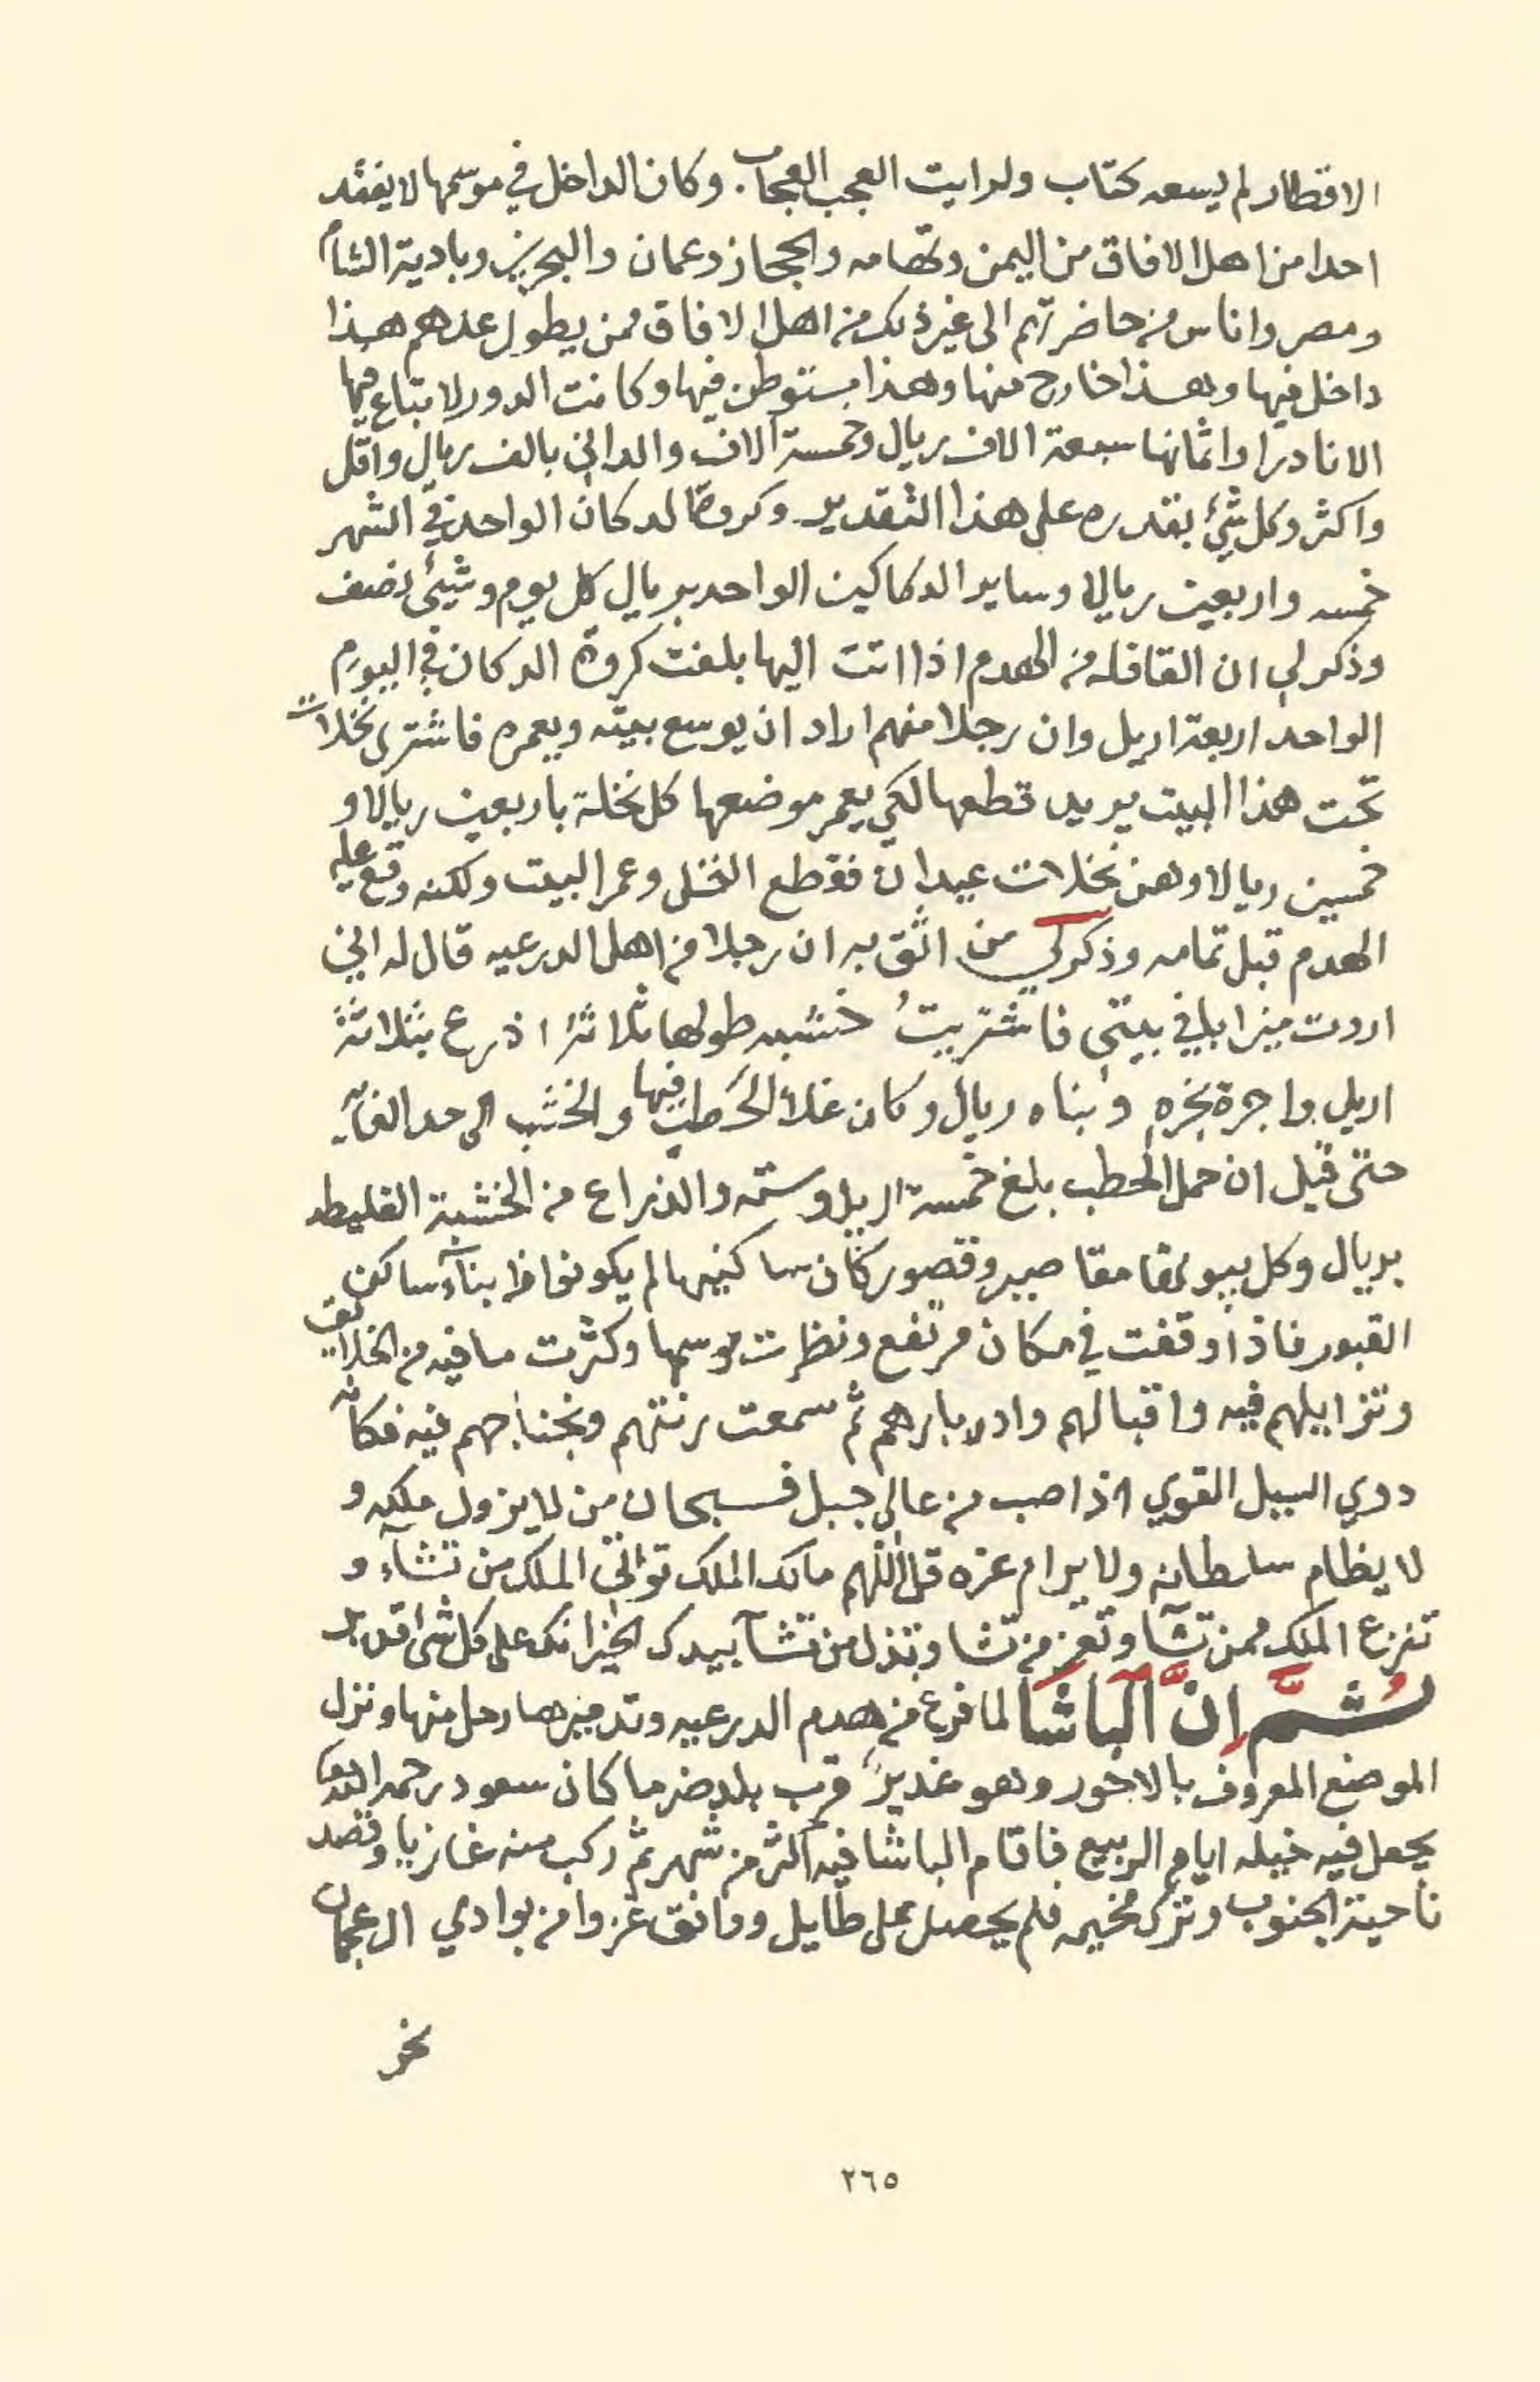 الاقطار لم يسعه كتاب ولرايت العجب العجاب. وكان الداخل في موسمها لا يفقد
احدا من اهل الافاق من اليمن وتهامه والحجاز وعمان والبحرين وبادية الشام
ومصر واناس من حاضرتهم الى غير ذلك من اهل الافاق ممن يطول عدهم هذا
داخل فيها وهذا خارج منها وهذا مستوطن فيها وكانت الدور لا تباع فيها
الا نادرا واثمانها سبعة الاف ريال وخمسة الاف والداني بالف ريال واقل
واكثر وكل شيئ بقدره على هذا التقدير وكروة الدكان الواحد في الشهر
خمسه واربعين ريالا وساير الدكاكين الواحد بريال كل يوم وشيئ نصف
وذكر لي ان القافله من الهدم اذا اتت اليها بلغت كروة الدكان في اليوم
الواحد اربعة اريل وان رجلا منهم اراد ان يوسع بيته ويعمره فاشترى نخلات
تحت هذا البيت يريد قطعها لكي يعمر موضعها كل نخلة باربعين ريالا و
خمسين ريالا وهن نخلات عيدان فقطع النخل وعمر البيت ولكنه وقع عليه
الهدم قبل تمامه وذكر لي من اثق به ان رجلا من اهل الدرعيه قال له اني
اردت ميزابا في بيتي فاشتريتُ خشبه طولها ثلاثة اذرع بثلاثة
اريل واجرة نجره وبناه ريال وكان غلاء الحطب فيها والخشب الى حد الغايه
حتى قيل ان حمل الحطب بلغ خمسة اريل وستة والذراع من الخشبة الغليطه
بريال وكل بيوتها مقاصير وقصور كأن ساكنيها لم يكونوا ابناء ساكن
القبور فاذا وقفت في مكان مرتفع ونظرت موسمها وكثرت ما فيه من الخلايق
وتزايلهم فيه واقبالهم وادبارهم ثم سمعت رنتهم ونجناجهم فيه فكانه
دوي السيل القوي اذا صب من عالي جبل فسبحان من لا يزول ملكه و
لا يظام سلطانه ولا يرام عزه قل اللهم مالك الملك توتي الملك من تشآء و
تنزع الملك ممن تشآ وتعز من تشا وتذل من تشآ بيدك الخير انك على كل شي قدير
ثُمَّ اِنَّ الباشا لما فرغ من هدم الدرعيه وتدميرها رحل منها ونزل
الموضع المعروف بالاخور وهو غدير قرب بلد ضرما كان سعود رحمه الله تعا
يجعل فيه خيله ايام الربيع فاقام الباشا فيه اكثر من شهر ثم ركب منه غازيا وقصد
ناحية الجنوب وترك مخيمه فلم يحصل على طايل ووافق غزوا من بوادي ال عجمان
نخر
٢٦٥